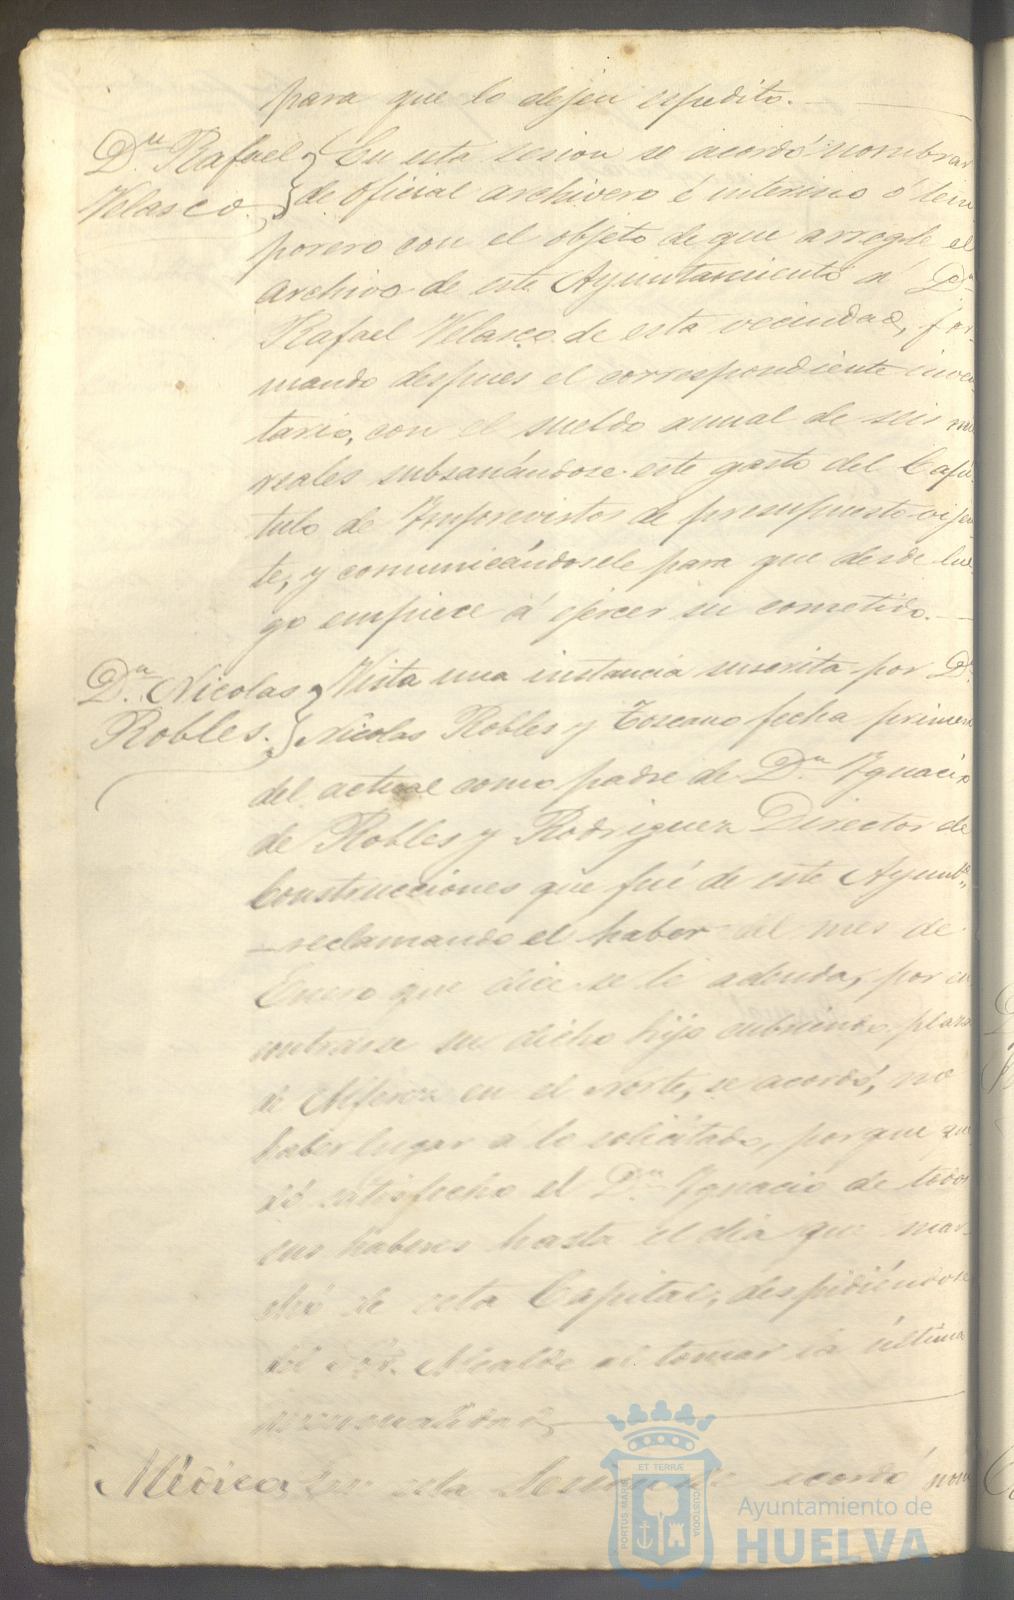 para que lo dejen espedito.
Dn. Rafael Velasco.
En esta sesion se acordó nombrar
de oficial archivero é interino ó tem
porero con el objeto de que arregle el
archivo de este Ayuntamiento á Dn
Rafael Velasco de esta vecindad, for
mando despues el correspondiente inven
tario, con el sueldo anual de seis mil
reales subsanándose este gasto del Capí
tulo de Imprevistos de presupuesto vijen
te, y comunicándosele para que desde lue
go empiece á ejercer su cometido.
Dn. Nicolas Robles.
Vista una instancia suscrita por Dn
Nicolas Robles y Toscano fecha primero
del actual como padre de Dn Ygnacio
de Robles y Rodriguez Director de
Construcciones que fué de este Ayunto.,
reclamando el haber del mes de
Enero que dice se le adeuda, por en
contrarse su dicho hijo cubriendo plaza
de Alferez en el Norte, se acordó, no
haber lugar a lo solicitado, porque que
dó satisfecho el Dn Ygnacio de todos
sus haberes hasta el dia que mar
chó de esta Capital, despidiéndose
del Sor. Alcalde al tomar la última
Música
En esta Sesion se acordó nom
PORTUS MARIS
ET TERRÆ
CUSTODIA
Ayuntamiento de
HUELVA